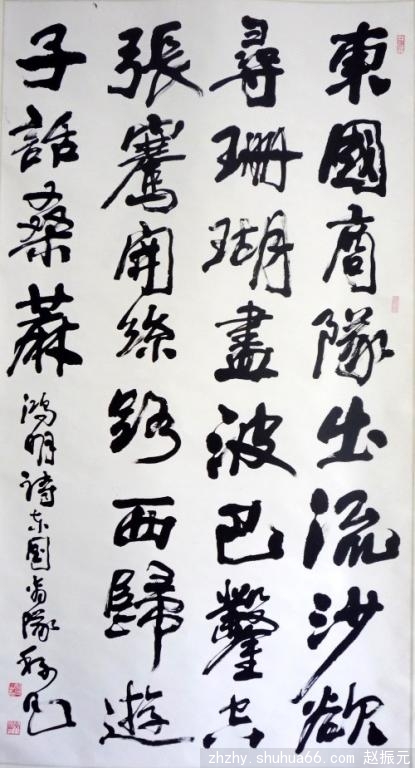 東國商隊出流沙欲
尋珊瑚盡波巴鑿空
張騫開絲路西歸遊
子話桑麻
鴻明詩東國商隊
zhzhy.shuhua66.com 赵振元